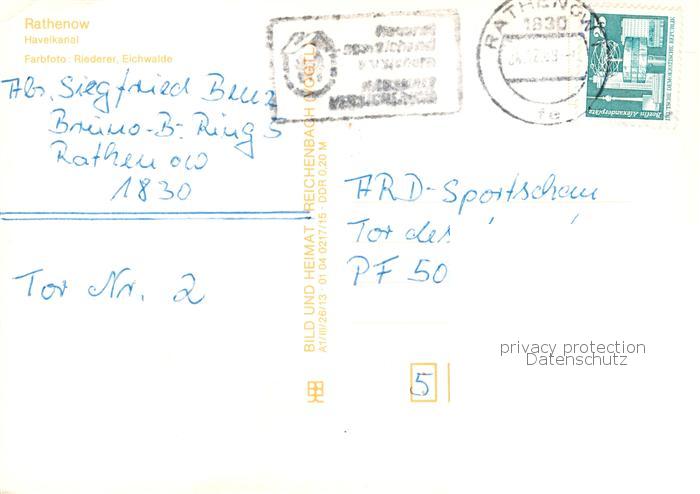 Rathenow
Havelkanal
Farbfoto: Riederer, Eichwalde
Abs. Siegfried
Bruno-B-Ring 5
Rathenow
1830
Tor Nr. 2
BILD UND HEIMAT REICHENBACH (VOGTL)
A1/III/26/13 · 01 04 0217/15 · DDR 0,20 M
RATHENOW
1830
25
Berlin, Alexanderplatz
DEUTSCHE DEMOKRATISCHE REPUBLIK
ARD-Sportschau
Tor des
PF 50
privacy protection
Datenschutz
5